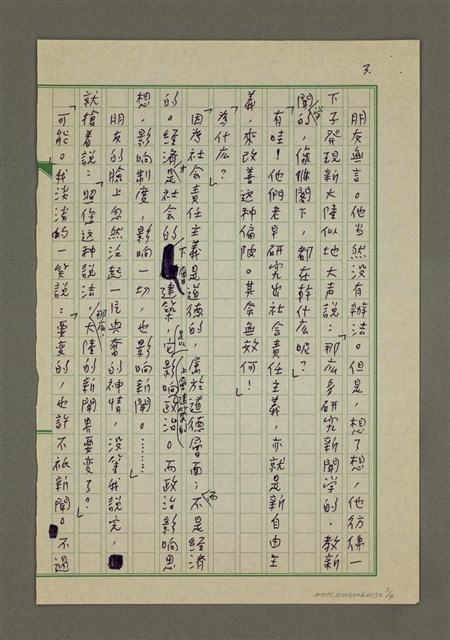 3.
朋友無言。他当然没有辦法。但是，想了想，他彷彿一
下子發現新大陸似地大声說：「那広多研究新聞学的、教新
聞学的，像你閣下，都在幹什広呢？」
「有哇！他們老早研究出社会責任主義，亦就是新自由主
義，來改善这种偏陂。其奈無效何！」
「為什広？」
「因為社会責任主義是道德的，属於道德層面；不是經濟
的。經濟才是社会的下層建築，它影响政治。而政治影响思
想，影响制度，影响一切，也影响新聞。……」
朋友的臉上忽然泛起一片興奮的神情，没等我說完，
就搶着說：「照你这种說法，那広大陸的新聞界要变了？」
「可能。」我淡淡的一笑說：「要变的，也許不祇新聞。不過